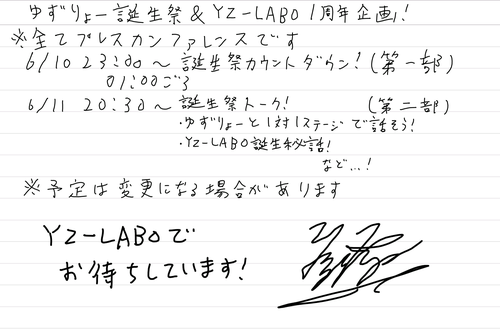 ゆずりょー誕生祭＆YZ-LABO1周年企画!
※全てプレスカンファレンスです
6/10 23:00～誕生祭カウントダウン!(第一部)
01:00ごろ
6/11 20:30～誕生祭トーク! (第二部)
・ゆずりょーと1対1ステージで話そう!
・YZ-LABO誕生秘話!
など...!
※予定は変更になる場合があります
YZ-LABOで
お待ちしています!